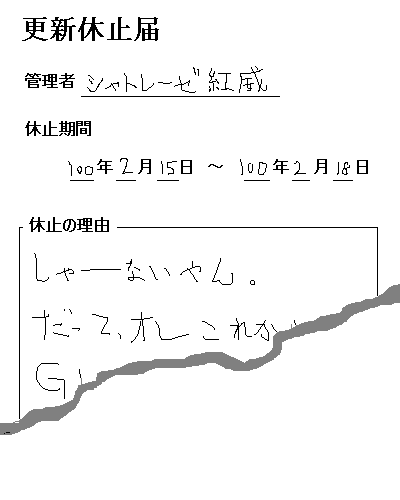 更新休止届
管理者 シャトレーゼ紅威
休止期間
100年2月15日 ～ 100年2月18日
休止の理由
しゃーないやん。
だって、オレこれか
G